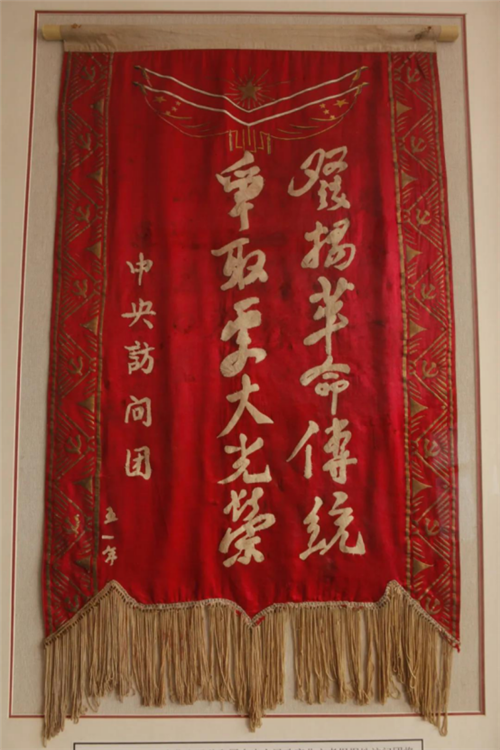 發揚革命傳統
爭取更大光榮
中央訪问团
五一年